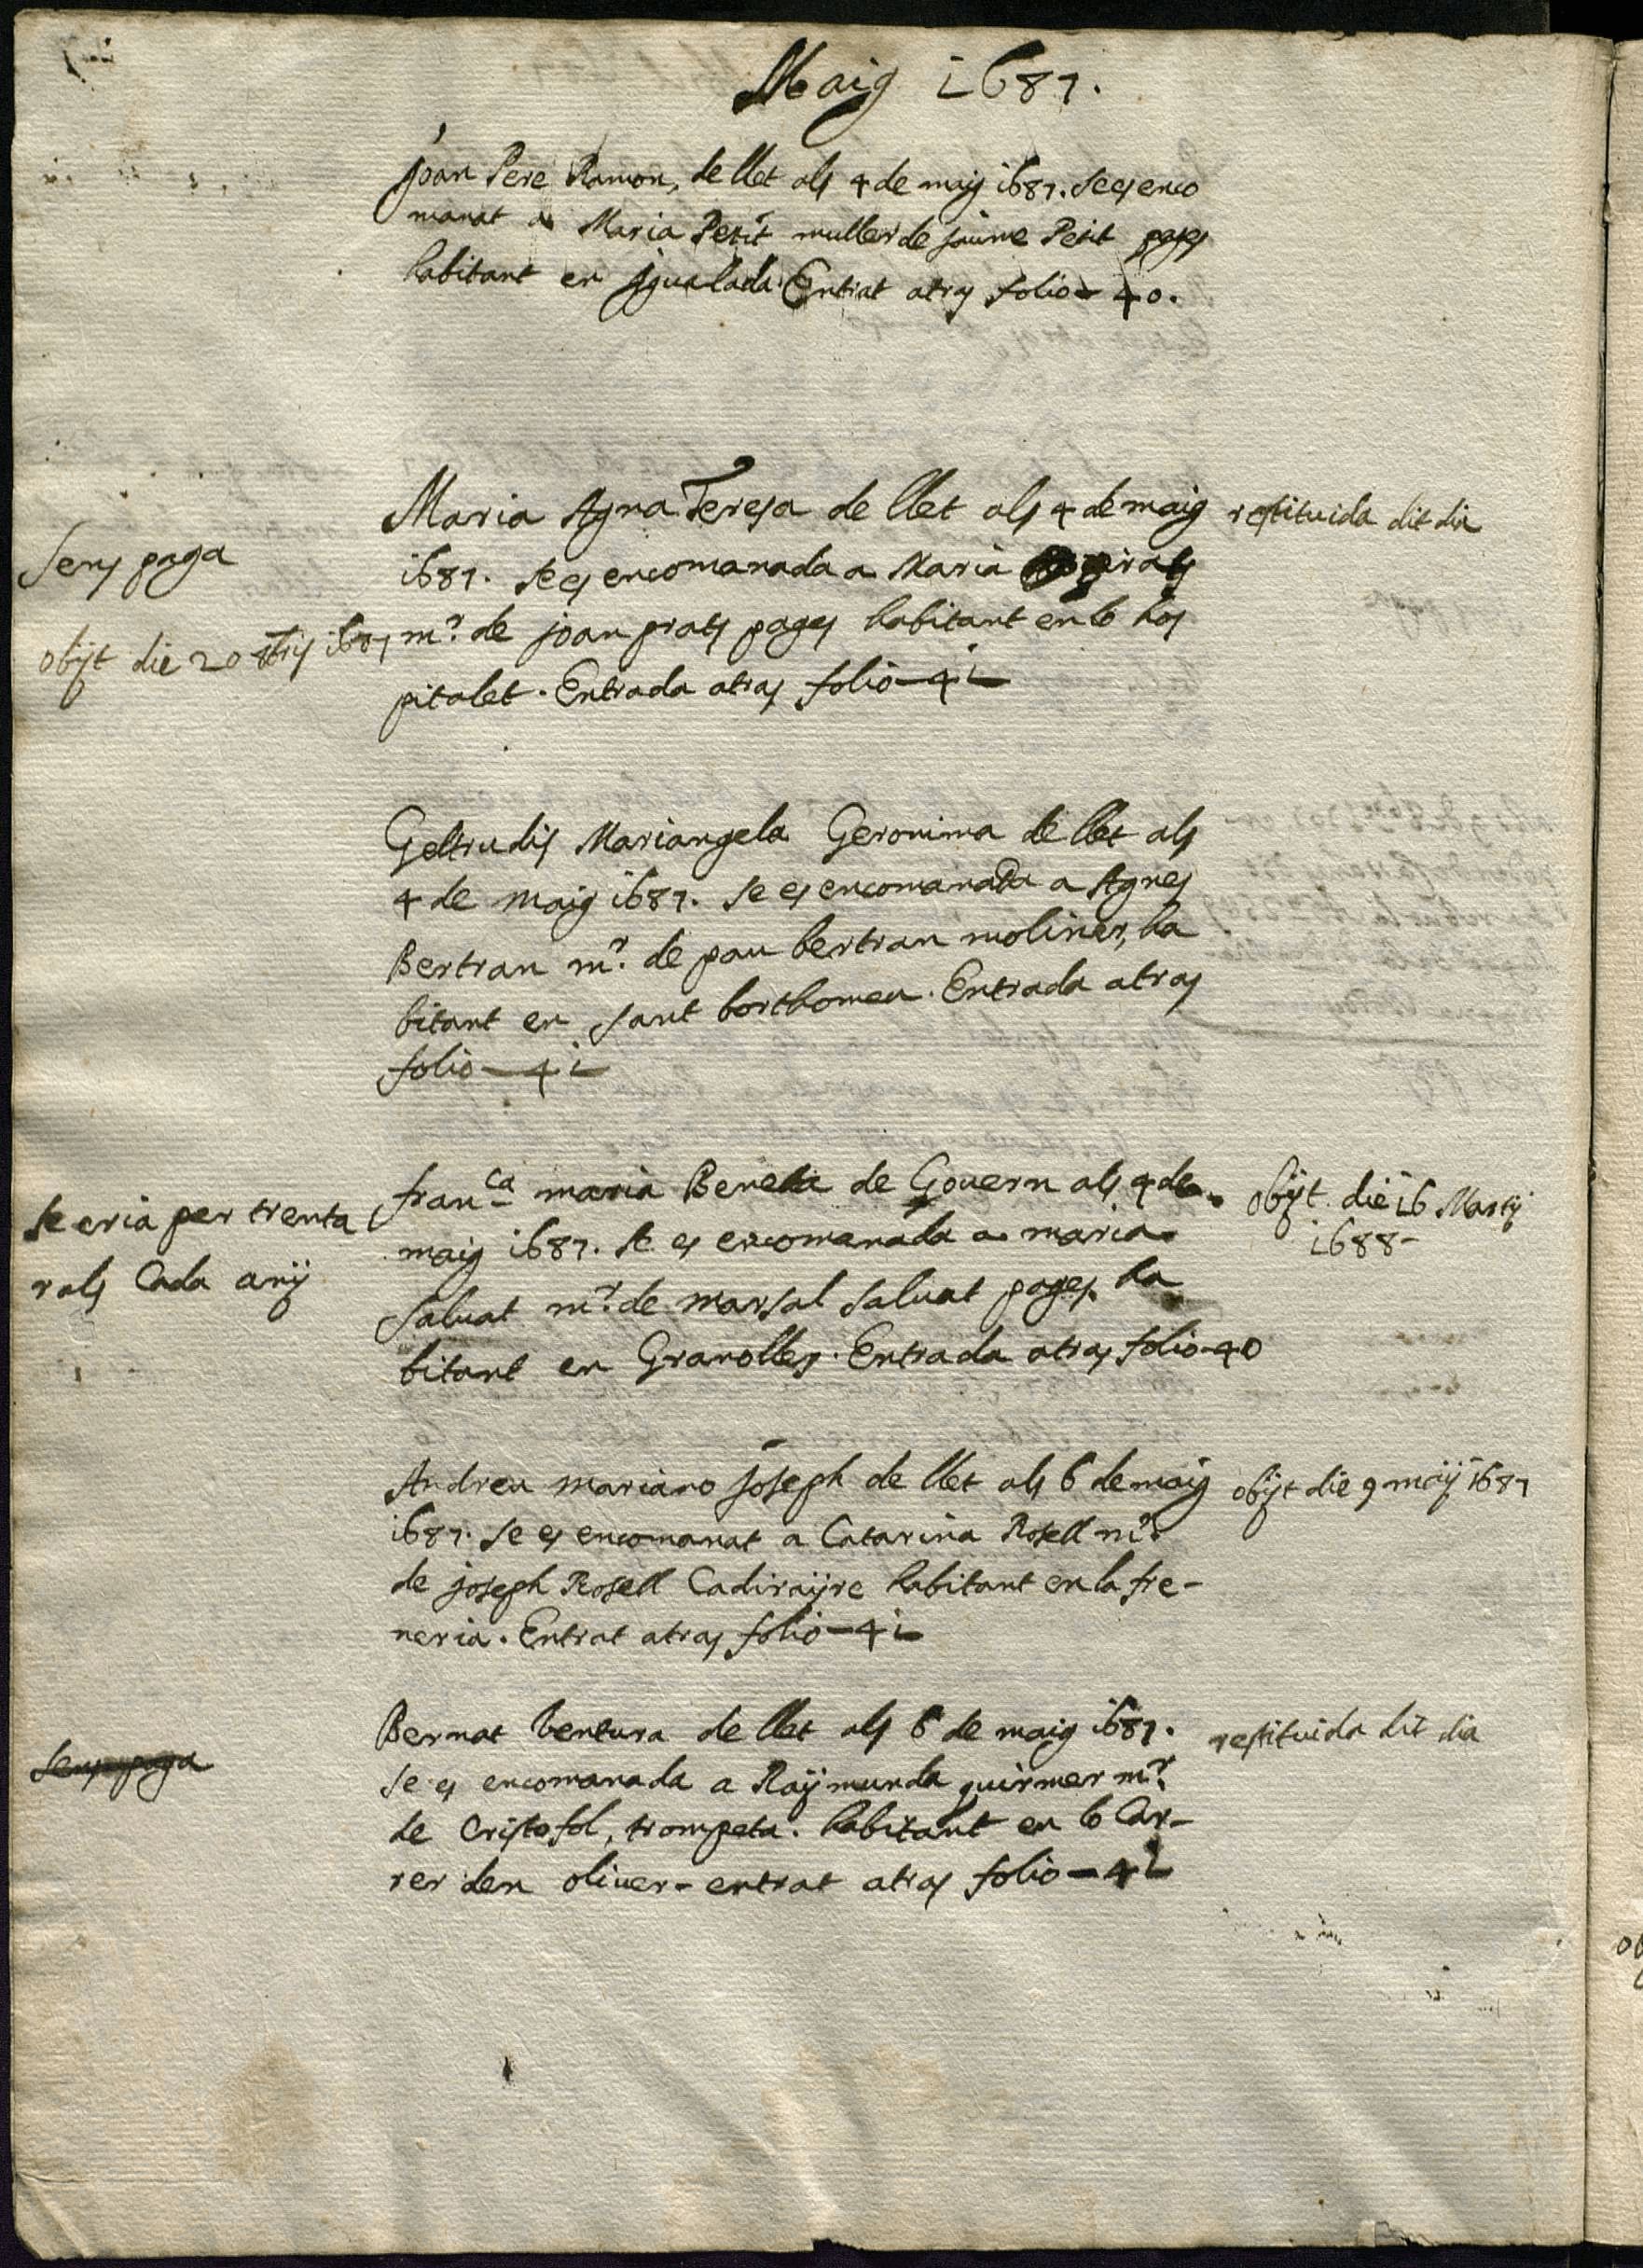 Maig 1687.
Joan Pere Ramon, de llet als 4 de maig 1687. se es enco
manat a Maria Petit muller de Jaume Petit pages
habitant en Jgualada. Entrat atras folio - 40.
Maria Agna Teresa de llet als 4 de maig
restituida dit dia
Sens paga
1687. se es encomanada a Maria prats
mr. de joan prats pages habitant en lo hos
obijt die 20
pitalet. Entrada atras folio - 41
Geltrudis Mariangela Geronima de llet als
4 de maig 1687. se es encomanada a Agnes
Bertran mr. de pau bertran moliner, ha
bitant en sant borthomeu. Entrada atras
folio - 41
franca maria Beneta de Govern als 4 de
obijt die 16 Martij
1688-
se cria per trenta
rals Cada anij
maig 1687. se es encomanada a maria
saluat mr. de marsal saluat pages. ha
bitant en Granollers. Entrada atras folio - 40
Andreu mariano Joseph de llet als 6 de maig
obijt die 9 maij 1687
1687. se es encomanat a Catarina Rosell mr.
de joseph Rosell Cadirayre habitant en la fre-
neria. Entrat atras folio - 41
Bernat Ventura de llet als 6 de maig 1687.
restituida dit dia
sens paga
se es encomanada a Raÿmunda guirmer mr.
de Cristofol, trompeta. habitant en lo Car-
rer den oliuer - entrat atras folio - 41